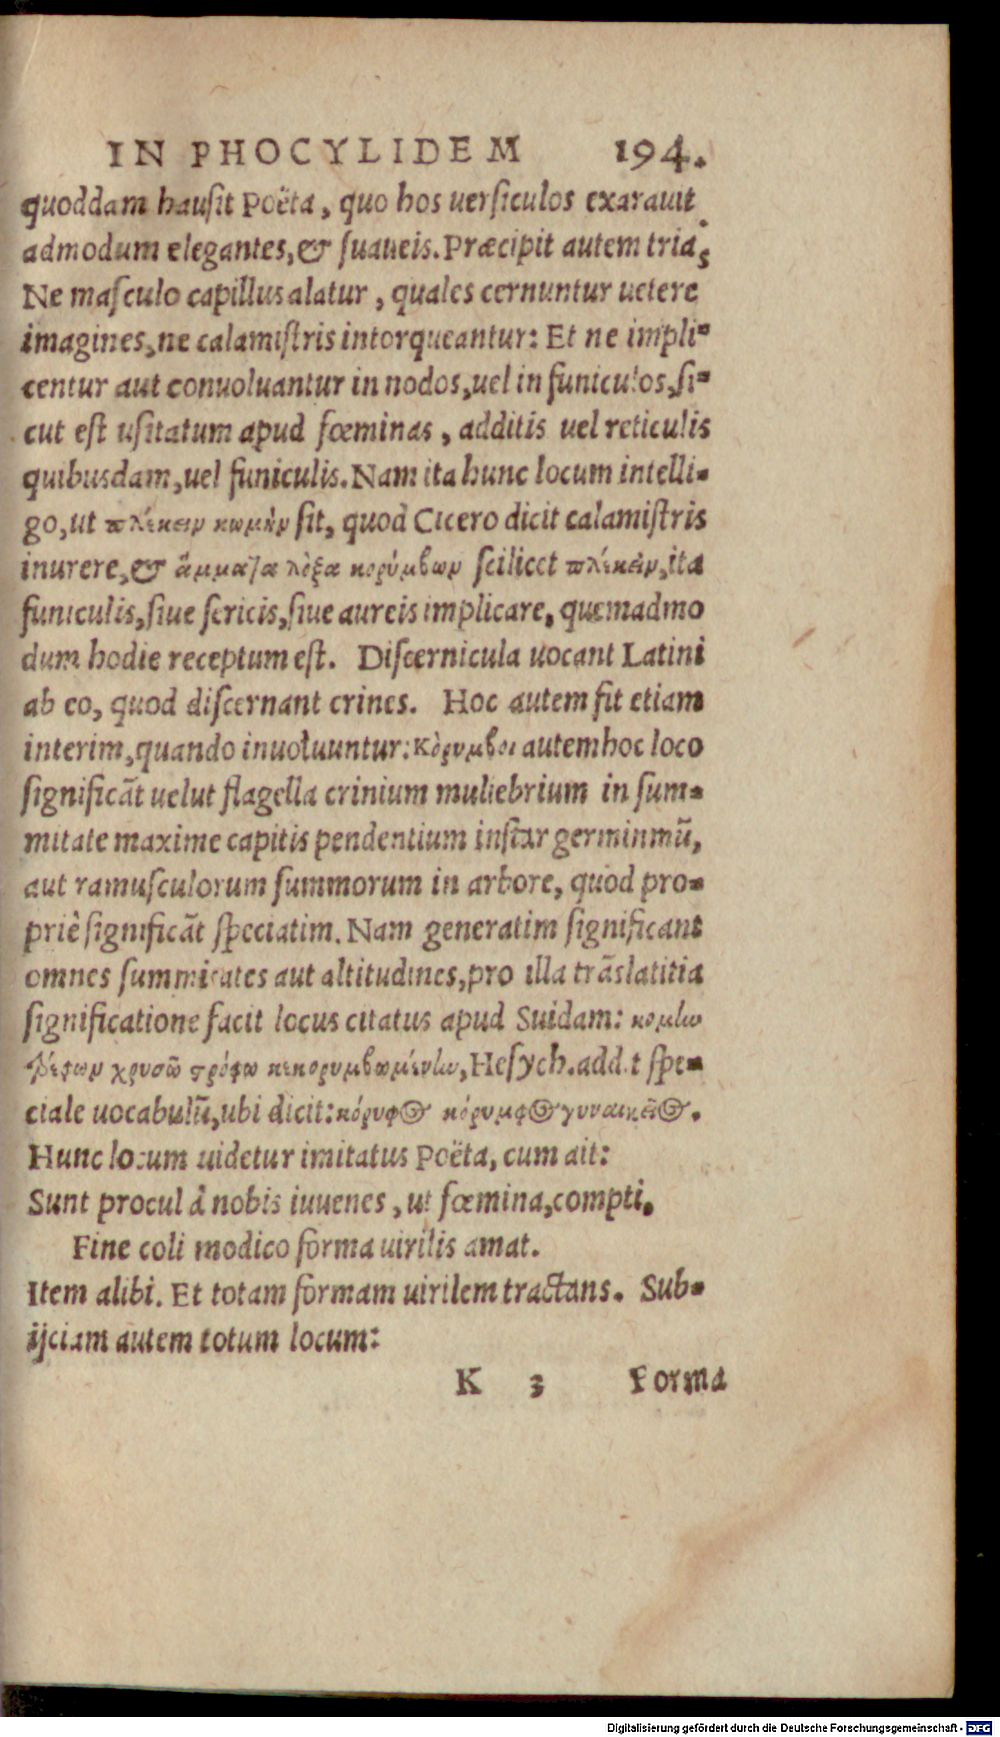 IN PHOCYLIDEM 194.
quoddam hausit Poëta, quo hos uersiculos exarauit
admodum elegantes, & suaueis. Præcipit autem tria,
Ne masculo capillus alatur, quales cernuntur uetere
imagines, ne calamistris intorqueantur: Et ne impli-
centur aut conuoluantur in nodos, uel in funiculos, si-
cut est usitatum apud fœminas, additis uel reticulis
quibusdam, uel funiculis. Nam ita hunc locum intelli-
go, ut πλέκειν κωμὴν sit, quod Cicero dicit calamistris
inurere, & ἅμματα λοξα κορύμβων scilicet πλέκειν, ita
funiculis, siue sericis, siue aureis implicare, quemadmo
dum hodie receptum est. Discernicula uocant Latini
ab eo, quod discernant crines. Hoc autem fit etiam
interim, quando inuoluuntur: κόρυμβοι autem hoc loco
significāt uelut flagella crinium muliebrium in sum-
mitate maxime capitis pendentium instar germinmū,
aut ramusculorum summorum in arbore, quod pro-
priè significāt speciatim. Nam generatim significant
omnes summitates aut altitudines, pro illa trāslatitia
significatione facit locus citatus apud Suidam: κομὴν
χρυσῶ στρόφω κεκορυμβωμένην, Hesych. addit spe-
ciale uocabulū, ubi dicit: κόρυφος κόρυμφος γυναικεῖος.
Hunc locum uidetur imitatus Poëta, cum ait:
Sunt procul à nobis iuuenes, ut fœmina, compti,
Fine coli modico forma uirilis amat.
Item alibi. Et totam formam uirilem tractans. Sub-
ijciam autem totum locum:
K 3 Forma
Digitalisierung gefördert durch die Deutsche Forschungsgemeinschaft - DFG